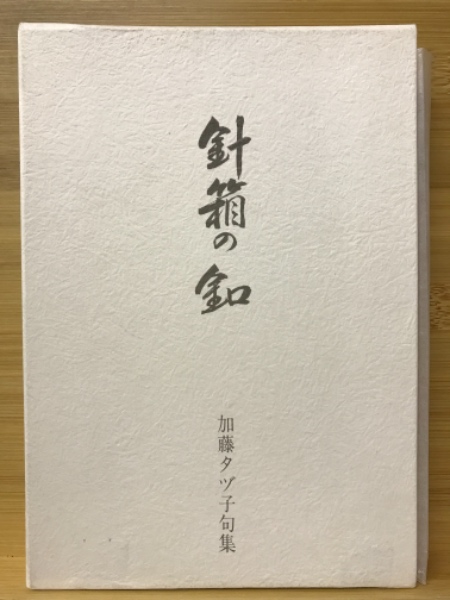 針箱の釦
加藤タヅ子句集